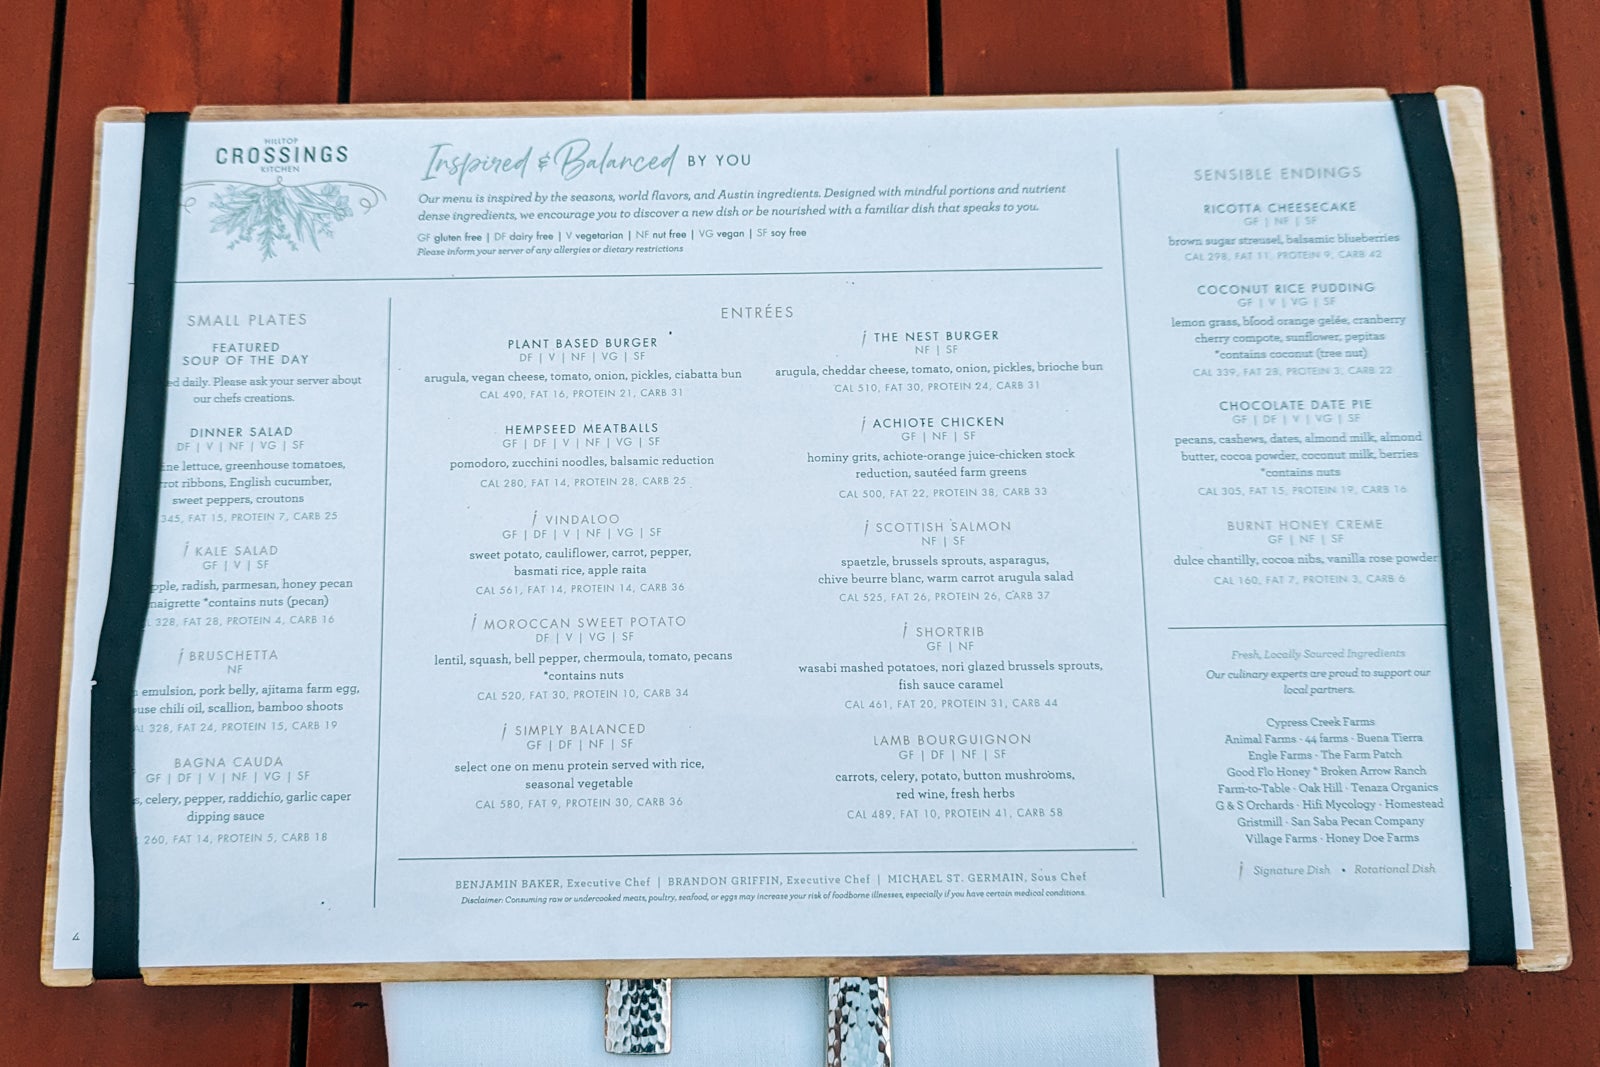 HILLTOP
CROSSINGS
KITCHEN
Inspired & Balanced BY YOU
Our menu is inspired by the seasons, world flavors, and Austin ingredients. Designed with mindful portions and nutrient
dense ingredients, we encourage you to discover a new dish or be nourished with a familiar dish that speaks to you.
GF gluten free | DF dairy free | V vegetarian | NF nut free | VG vegan | SF soy free
Please inform your server of any allergies or dietary restrictions
SMALL PLATES
FEATURED
SOUP OF THE DAY
daily. Please ask your server about
our chefs creations.
DINNER SALAD
DF | V | NF | VG | SF
lettuce, greenhouse tomatoes,
ribbons, English cucumber,
sweet peppers, croutons
345, FAT 15, PROTEIN 7, CARB 25
KALE SALAD
GF | V | SF
radish, parmesan, honey pecan
*contains nuts (pecan)
328, FAT 28, PROTEIN 4, CARB 16
BRUSCHETTA
NF
emulsion, pork belly, ajitama farm egg,
chili oil, scallion, bamboo shoots
328, FAT 24, PROTEIN 15, CARB 19
BAGNA CAUDA
GF | DF | V | NF | VG | SF
celery, pepper, raddichio, garlic caper
dipping sauce
260, FAT 14, PROTEIN 5, CARB 18
ENTRÉES
PLANT BASED BURGER
DF | V | NF | VG | SF
arugula, vegan cheese, tomato, onion, pickles, ciabatta bun
CAL 490, FAT 16, PROTEIN 21, CARB 31
HEMPSEED MEATBALLS
GF | DF | V | NF | VG | SF
pomodoro, zucchini noodles, balsamic reduction
CAL 280, FAT 14, PROTEIN 28, CARB 25
VINDALOO
GF | DF | V | NF | VG | SF
sweet potato, cauliflower, carrot, pepper,
basmati rice, apple raita
CAL 561, FAT 14, PROTEIN 14, CARB 36
MOROCCAN SWEET POTATO
DF | V | VG | SF
lentil, squash, bell pepper, chermoula, tomato, pecans
*contains nuts
CAL 520, FAT 30, PROTEIN 10, CARB 34
SIMPLY BALANCED
GF | DF | NF | SF
select one on menu protein served with rice,
seasonal vegetable
CAL 580, FAT 9, PROTEIN 30, CARB 36
THE NEST BURGER
NF | SF
arugula, cheddar cheese, tomato, onion, pickles, brioche bun
CAL 510, FAT 30, PROTEIN 24, CARB 31
ACHIOTE CHICKEN
GF | NF | SF
hominy grits, achiote-orange juice-chicken stock
reduction, sautéed farm greens
CAL 500, FAT 22, PROTEIN 38, CARB 33
SCOTTISH SALMON
NF | SF
spaetzle, brussels sprouts, asparagus,
chive beurre blanc, warm carrot arugula salad
CAL 525, FAT 26, PROTEIN 26, CARB 37
SHORTRIB
GF | NF
wasabi mashed potatoes, nori glazed brussels sprouts,
fish sauce caramel
CAL 461, FAT 20, PROTEIN 31, CARB 44
LAMB BOURGUIGNON
GF | DF | NF | SF
carrots, celery, potato, button mushrooms,
red wine, fresh herbs
CAL 489, FAT 10, PROTEIN 41, CARB 58
BENJAMIN BAKER, Executive Chef | BRANDON GRIFFIN, Executive Chef | MICHAEL ST. GERMAIN, Sous Chef
Disclaimer: Consuming raw or undercooked meats, poultry, seafood, or eggs may increase your risk of foodborne illnesses, especially if you have certain medical conditions.
SENSIBLE ENDINGS
RICOTTA CHEESECAKE
GF | NF | SF
brown sugar streusel, balsamic blueberries
CAL 298, FAT 11, PROTEIN 9, CARB 42
COCONUT RICE PUDDING
GF | V | VG | SF
lemon grass, blood orange gelée, cranberry
cherry compote, sunflower, pepitas
*contains coconut (tree nut)
CAL 339, FAT 28, PROTEIN 3, CARB 22
CHOCOLATE DATE PIE
GF | DF | V | VG | SF
pecans, cashews, dates, almond milk, almond
butter, cocoa powder, coconut milk, berries
*contains nuts
CAL 305, FAT 15, PROTEIN 19, CARB 16
BURNT HONEY CREME
GF | NF | SF
dulce chantilly, cocoa nibs, vanilla rose powder
CAL 160, FAT 7, PROTEIN 3, CARB 6
Fresh, Locally Sourced Ingredients
Our culinary experts are proud to support our
local partners.
Cypress Creek Farms
Animal Farms · 44 farms · Buena Tierra
Engle Farms · The Farm Patch
Good Flo Honey * Broken Arrow Ranch
Farm-to-Table · Oak Hill · Tenaza Organics
G & S Orchards · Hifi Mycology · Homestead
Gristmill · San Saba Pecan Company
Village Farms · Honey Doe Farms
Signature Dish • Rotational Dish
4